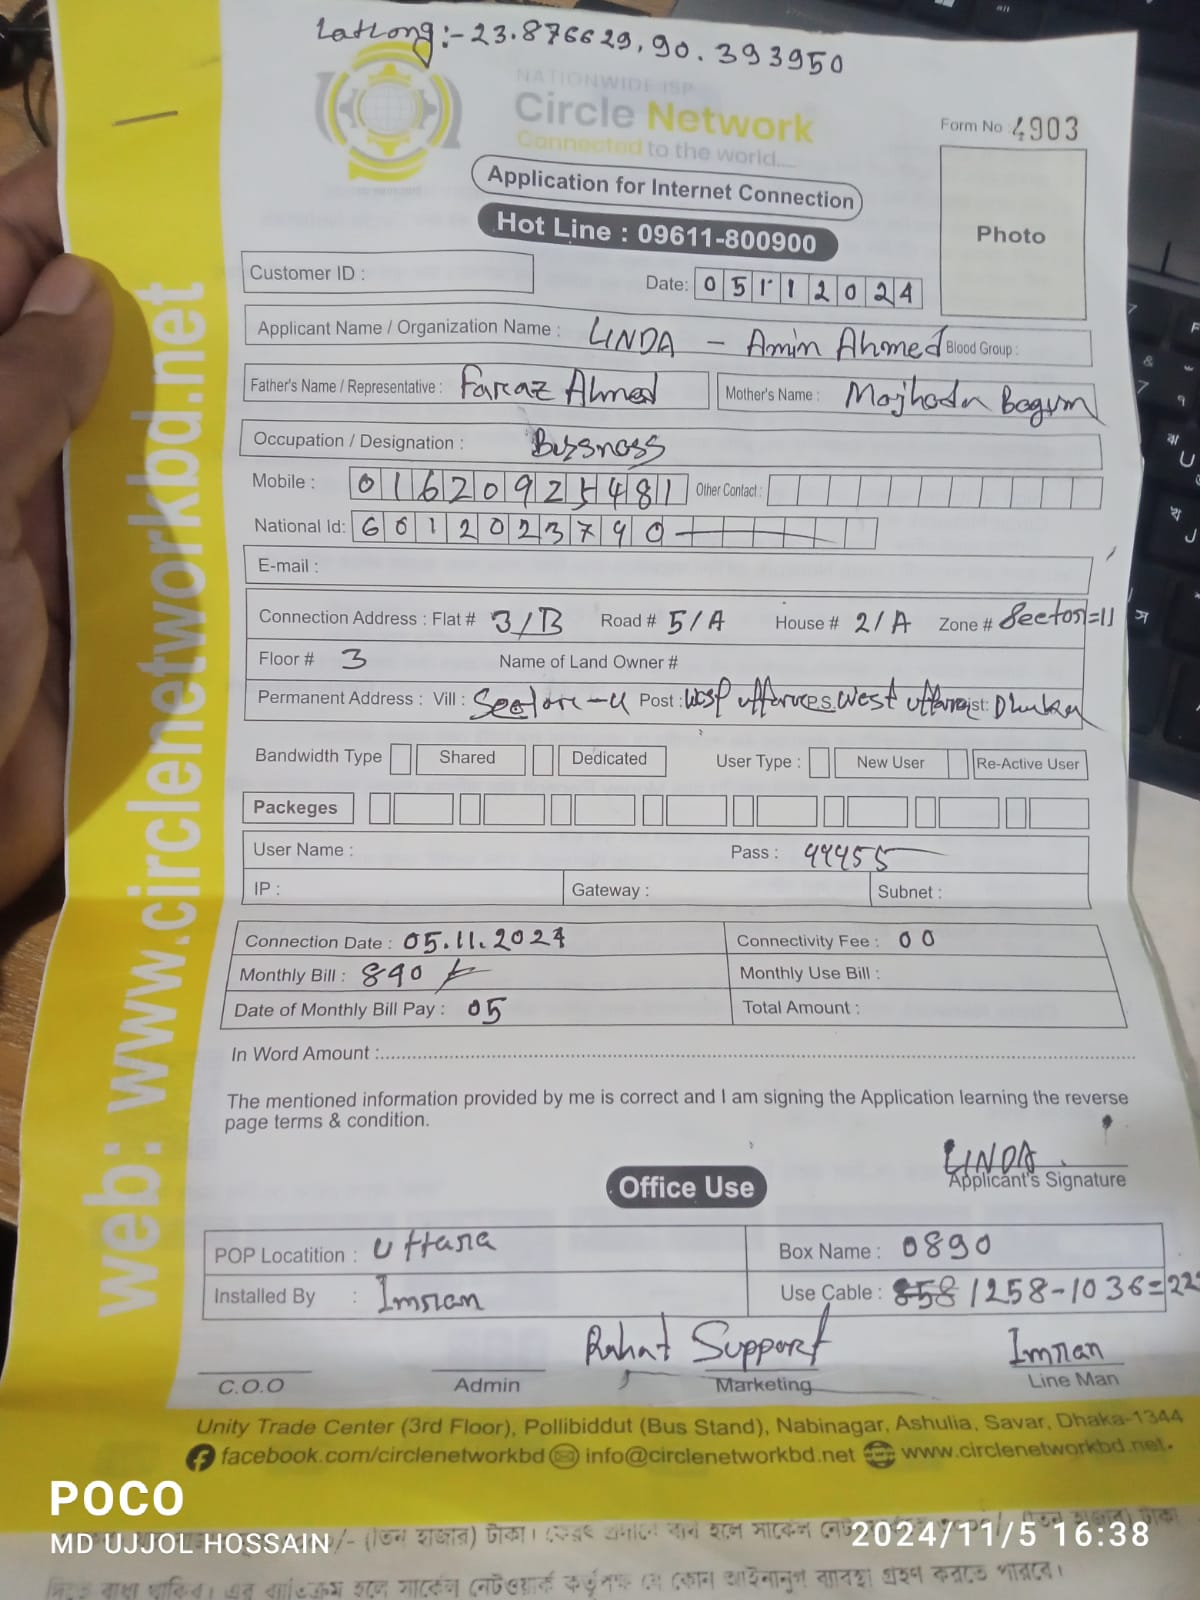 LatLong:-23.876629,90.393950
NATIONWIDE ISP
Circle Network
Connected to the world....
Form No 4903
Application for Internet Connection
Hot Line : 09611-800900
Photo
Customer ID :
Date: 05112024
Applicant Name / Organization Name : LINDA - Amin Ahmed Blood Group :
Father's Name / Representative : Faraz Ahmed Mother's Name :
Occupation / Designation : Bussness
Mobile : 01620925481 Other Contact :
National Id: 6012023790
E-mail :
Connection Address : Flat # 3/B Road # 5/A House # 2/A Zone # Sector=11
Floor # 3 Name of Land Owner #
Permanent Address : Vill : Post : P.S. West Dist:
Bandwidth Type Shared Dedicated User Type : New User Re-Active User
Packeges
User Name : Pass : 99955
IP : Gateway : Subnet :
Connection Date : 05.11.2024 Connectivity Fee : 00
Monthly Bill : 890 Monthly Use Bill :
Date of Monthly Bill Pay : 05 Total Amount :
In Word Amount :
The mentioned information provided by me is correct and I am signing the Application learning the reverse
page terms & condition.
LINDA
Applicant's Signature
Office Use
POP Locatition : Uttara Box Name : 0890
Installed By : Imran Use Cable : 1258-1036=22
Rahat Support Imran
C.O.O Admin Marketing Line Man
Unity Trade Center (3rd Floor), Pollibiddut (Bus Stand), Nabinagar, Ashulia, Savar, Dhaka-1344
facebook.com/circlenetworkbd info@circlenetworkbd.net www.circlenetworkbd.net.
web: www.circlenetworkbd.net
POCO
MD UJJOL HOSSAIN
2024/11/5 16:38